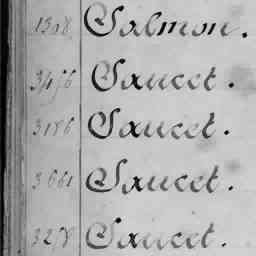 1308. Salmon.
3456 Saucet.
3186 Saucet.
3661 Saucet.
3278 Saucet.